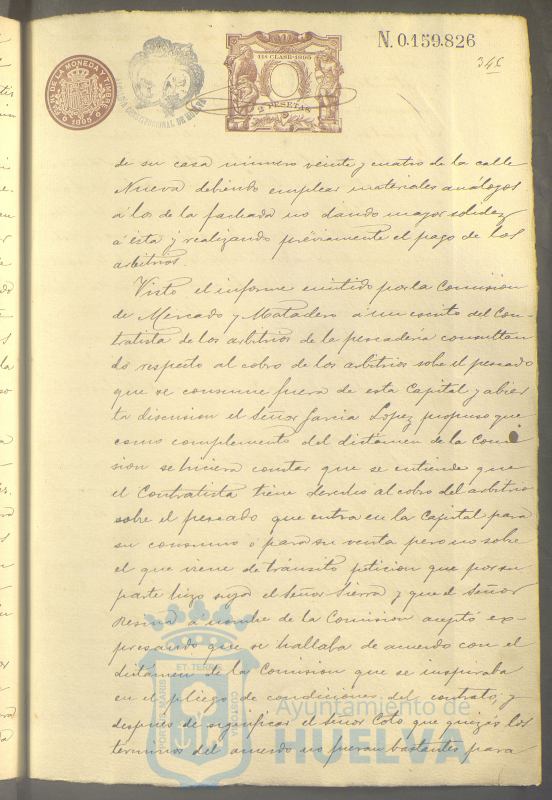 N. 0.159.826
34
FAB. NAL. DE LA MONEDA Y TIMBRE
1895
11ª CLASE-1895
2 PESETAS
CONSTITUCIONAL DE HUELVA
de su casa número veinte y cuatro de la calle
Nueva debiendo emplear materiales análogos
á los de la fachada no dando mayor solidez
á esta y realizando préviamente el pago de los
arbitrios.
Visto el informe emitido por la Comision
de Mercado y Matadero á un escrito del Con-
tratista de los arbitrios de la pescadería consultan
do respecto al cobro de los arbitrios sobre el pescado
que se consume fuera de esta Capital y abier
ta discusion el Señor Garcia Lopez propuso que
como complemento del dictamen de la Comi
sion se hiciera constar que se entiende que
el Contratista tiene derecho al cobro del arbitrio
sobre el pescado que entra en la Capital para
su consumo ó para su venta pero no sobre
el que viene de tránsito peticion que por su
parte hizo suya el Señor Sierra y que el Señor
Resina á nombre de la Comision aceptó ex-
presando que se hallaba de acuerdo con el
dictámen de la Comision que se inspiraba
en el pliego de condiciones del contrato, y
despues de significar el Señor Coto que quizás los
terminos del acuerdo no fueran bastantes para
PORTUS MARIS ET TERRÆ CUSTODIA
Ayuntamiento de
HUELVA